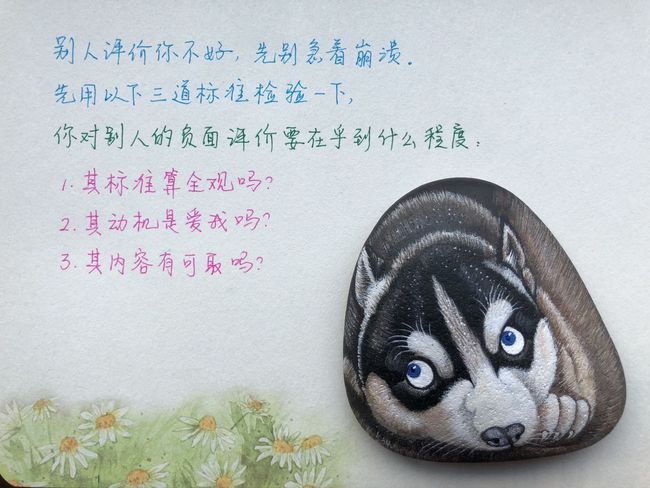 别人评价你不好，先别急着崩溃。
先用以下三道标准检验一下，
你对别人的负面评价要在乎到什么程度：
1. 其标准算全观吗？
2. 其动机是爱我吗？
3. 其内容有可取吗？